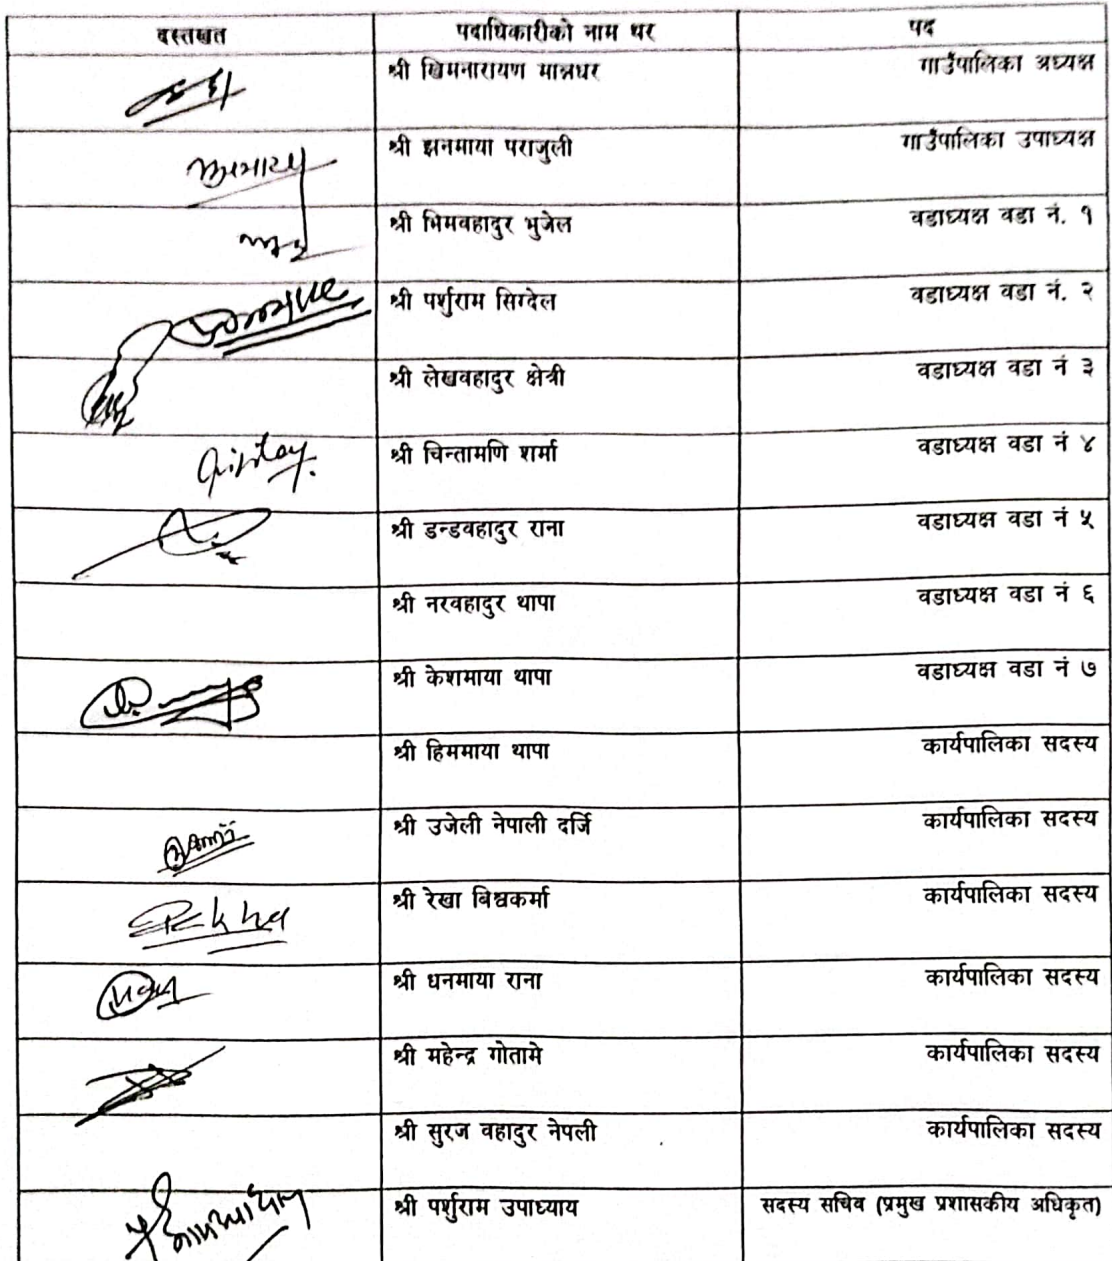 दस्तखत पदाधिकारीको नाम थर पद
श्री खिमनारायण मानन्धर गाउँपालिका अध्यक्ष
श्री झनमाया पराजुली गाउँपालिका उपाध्यक्ष
श्री भिमवहादुर भुजेल वडाध्यक्ष वडा नं. १
श्री पर्शुराम सिग्देल वडाध्यक्ष वडा नं. २
श्री लेखवहादुर क्षेत्री वडाध्यक्ष वडा नं ३
श्री चिन्तामणि शर्मा वडाध्यक्ष वडा नं ४
श्री डन्डवहादुर राना वडाध्यक्ष वडा नं ५
श्री नरवहादुर थापा वडाध्यक्ष वडा नं ६
श्री केशमाया थापा वडाध्यक्ष वडा नं ७
श्री हिममाया थापा कार्यपालिका सदस्य
श्री उजेली नेपाली दर्जि कार्यपालिका सदस्य
Rekha श्री रेखा बिश्वकर्मा कार्यपालिका सदस्य
श्री धनमाया राना कार्यपालिका सदस्य
श्री महेन्द्र गोतामे कार्यपालिका सदस्य
श्री सुरज वहादुर नेपली कार्यपालिका सदस्य
श्री पर्शुराम उपाध्याय सदस्य सचिव (प्रमुख प्रशासकीय अधिकृत)